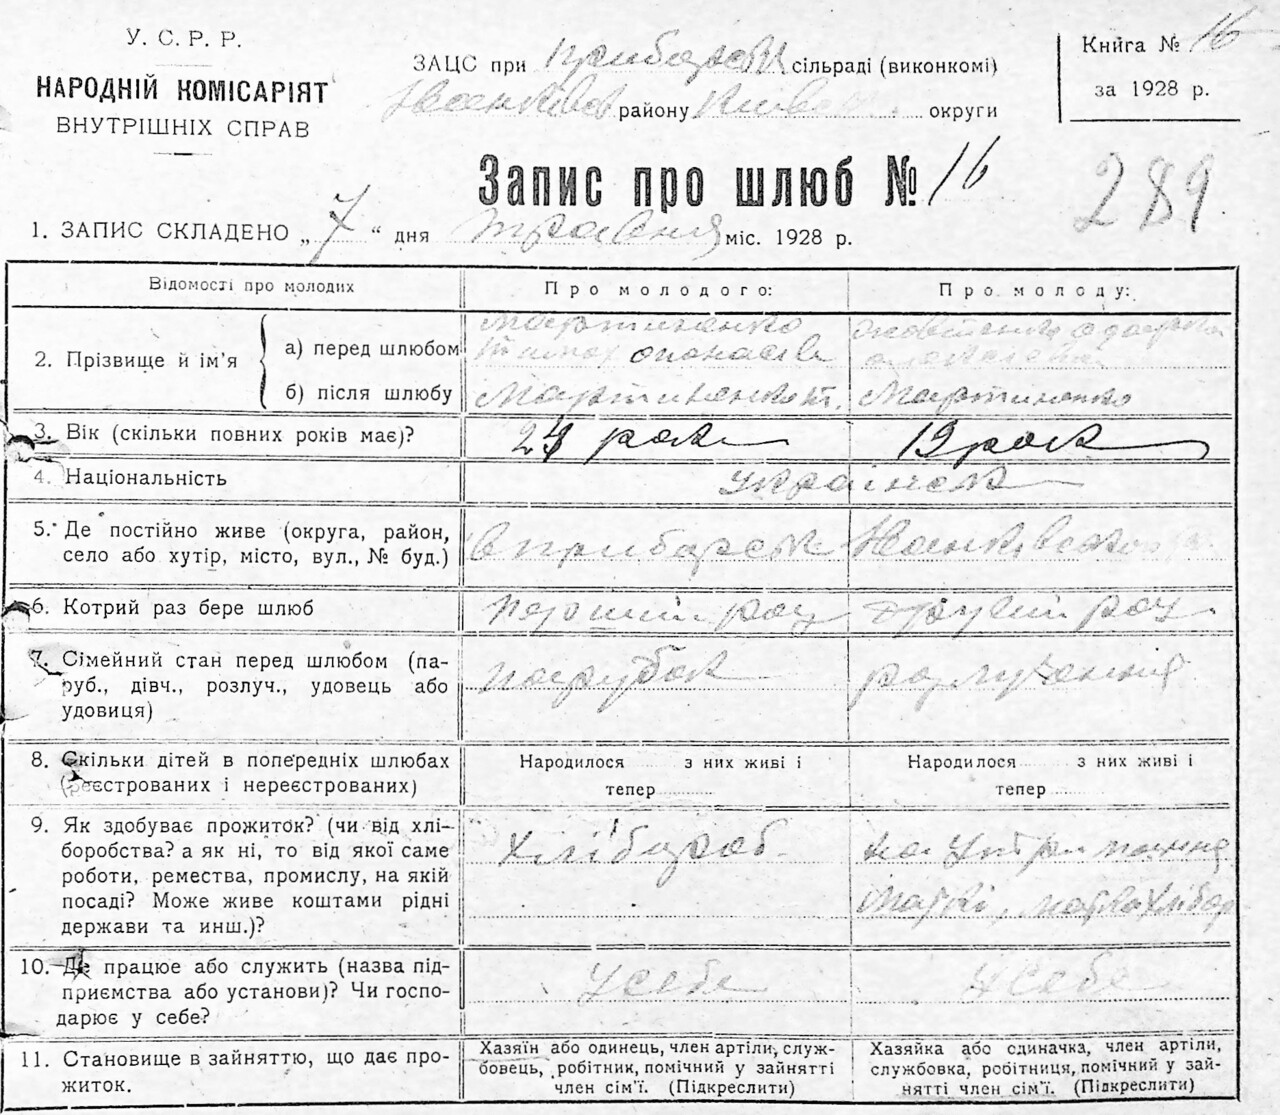 У. С. Р. Р.
НАРОДНІЙ КОМІСАРІЯТ
ВНУТРІШНІХ СПРАВ
ЗАЦС при сільраді (виконкомі)
району округи
Книга № 16
за 1928 р.
Запис про шлюб № 16
289
1. ЗАПИС СКЛАДЕНО „ 7 “ дня травня міс. 1928 р.
Відомості про молодих
Про молодого:
Про молоду:
2. Прізвище й ім'я
а) перед шлюбом
Мартиненко
б) після шлюбу
Мартиненко т.
Мартиненко
3. Вік (скільки повних років має)?
роки
19 рок
4. Національність
Українськ
5. Де постійно живе (округа, район,
село або хутір, місто, вул., № буд.)
6. Котрий раз бере шлюб
перший раз
другий раз
7. Сімейний стан перед шлюбом (па-
руб., дівч., розлуч., удовець або
удовиця)
парубок
8. Скільки дітей в попередніх шлюбах
(реєстрованих і нереєстрованих)
Народилося з них живі і
тепер
Народилося з них живі і
тепер
9. Як здобуває прожиток? (чи від хлі-
боробства? а як ні, то від якої саме
роботи, ремества, промислу, на якій
посаді? Може живе коштами рідні
держави та инш.)?
на
10. Де працює або служить (назва під-
приємства або установи)? Чи госпо-
дарює у себе?
У себе
У себе
11. Становище в зайняттю, що дає про-
житок.
Хазяїн або одинець, член артілі, служ-
бовець, робітник, помічний у зайнятті
член сім'ї. (Підкреслити)
Хазяйка або єдиначка, член артіли,
службовка, робітниця, помічний у зай-
нятті член сім'ї. (Підкреслити)